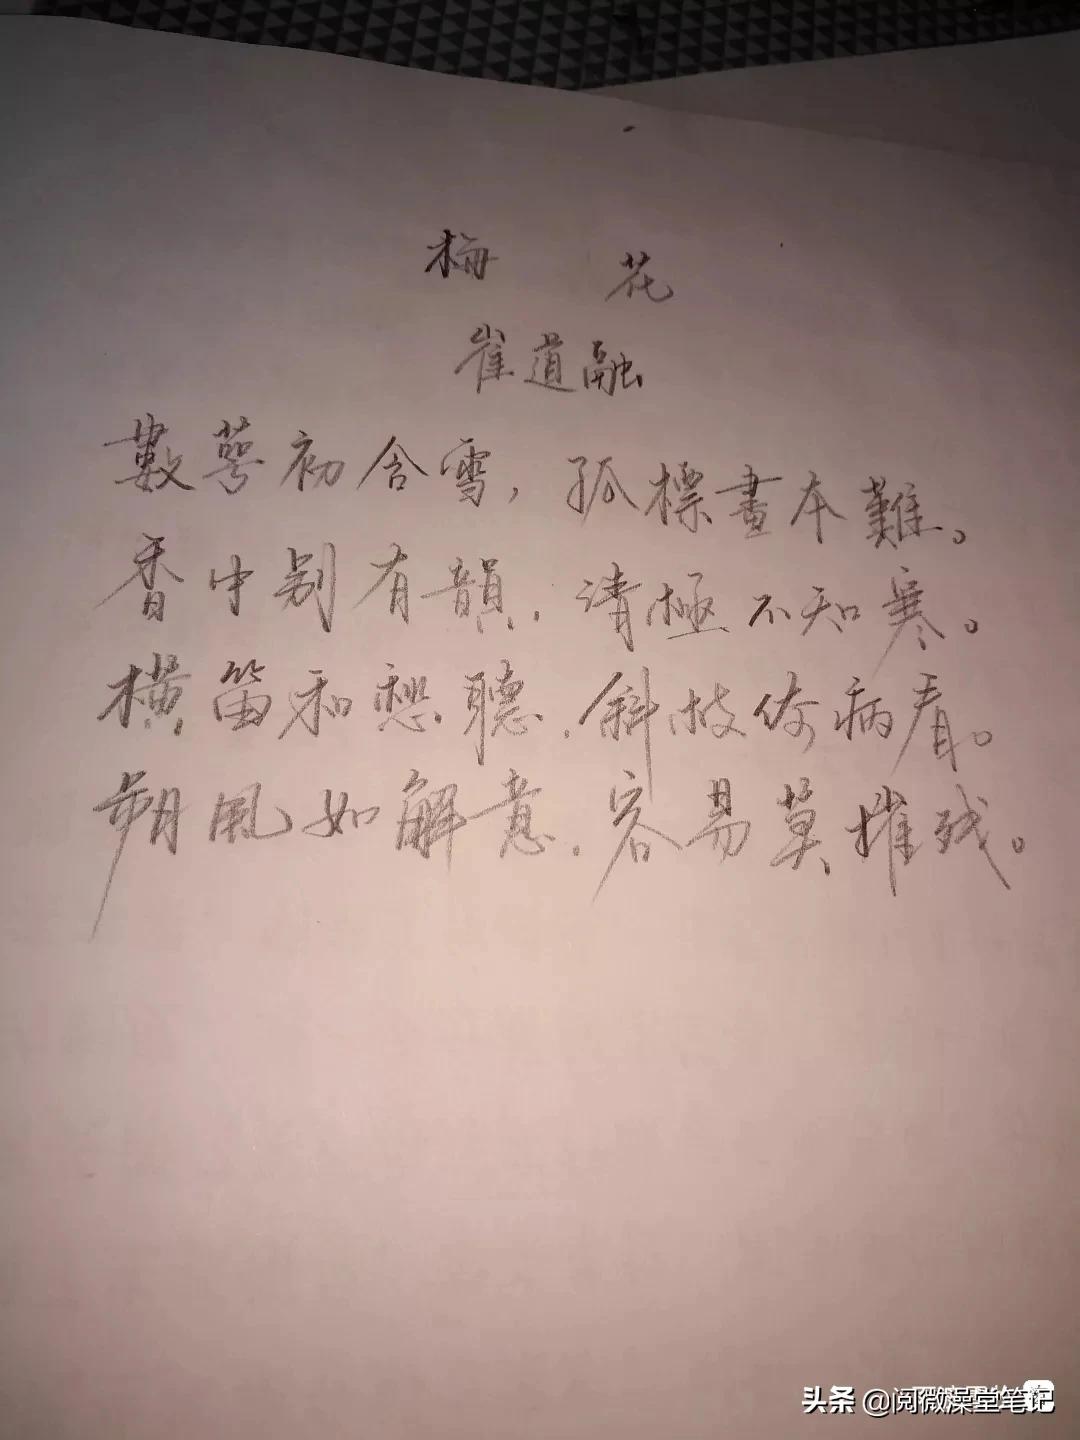 梅 花
崔道融
數萼初含雪，孤標畫本難。
香中别有韻，清極不知寒。
横笛和愁聽，斜枝倚病看。
朔風如解意，容易莫摧残。
头条 @阅微澡堂笔记